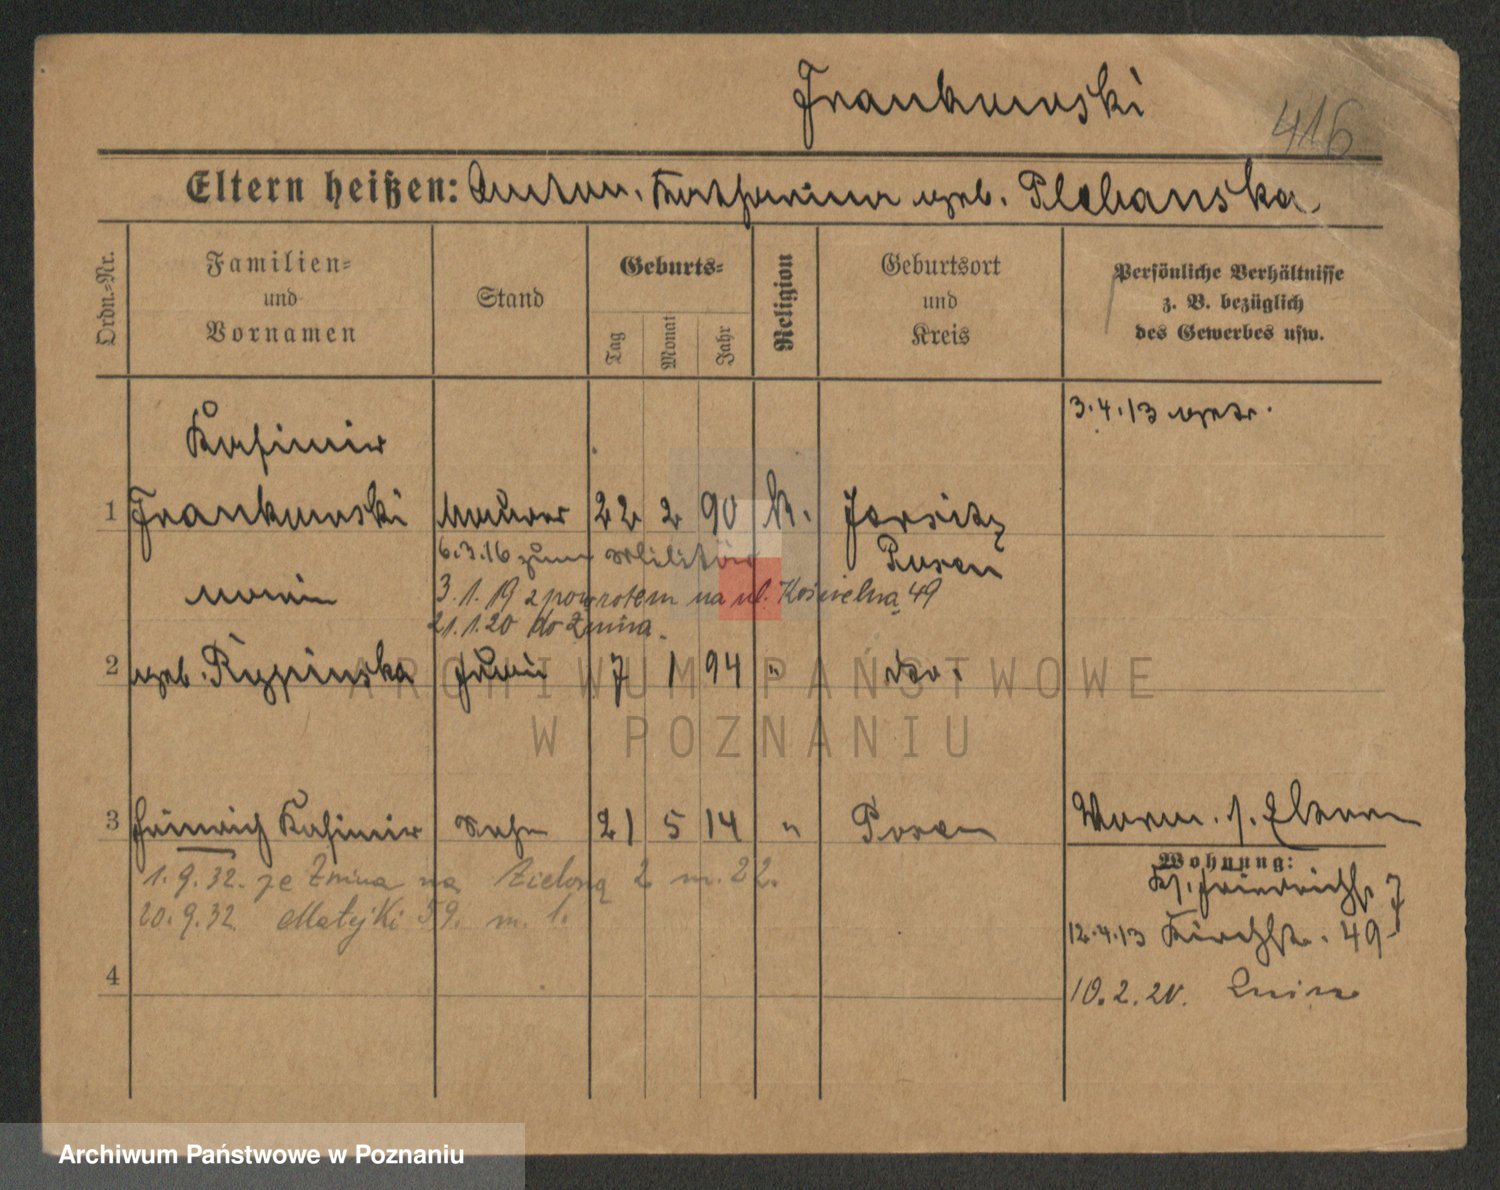 Frankowski
416
Eltern heißen: Anton. Katharina geb. Plebanska.
Ordn.-Nr.
Familien-
und
Vornamen
Stand
Geburts-
Tag
Monat
Jahr
Religion
Geburtsort
und
Kreis
Persönliche Verhältnisse
z. B. bezüglich
des Gewerbes usw.
3.4.13 getr.
Kasimir
1 Frankowski Maurer 22 2 90 k. Jersitz
6.3.16 zum Militär Posen
Maria 3.1.19 z powrotem na ul. Kościelna 49
21.1.20 do Żnina.
2 geb. Rypinska Frau 7 1 94 " do.
ARCHIWUM PAŃSTWOWE
W POZNANIU
3 Heinrich Kasimir Sohn 21 5 14 " Posen
Vorm. s. Eltern
Wohnung:
1.9.32. ze Żnina na Zieloną 2 m. 22.
Kl. Friedrichstr. 7
20.9.32 Matejki 59. m. 1.
12.4.13 Kirchstr. 49
4
10.2.20.
Archiwum Państwowe w Poznaniu